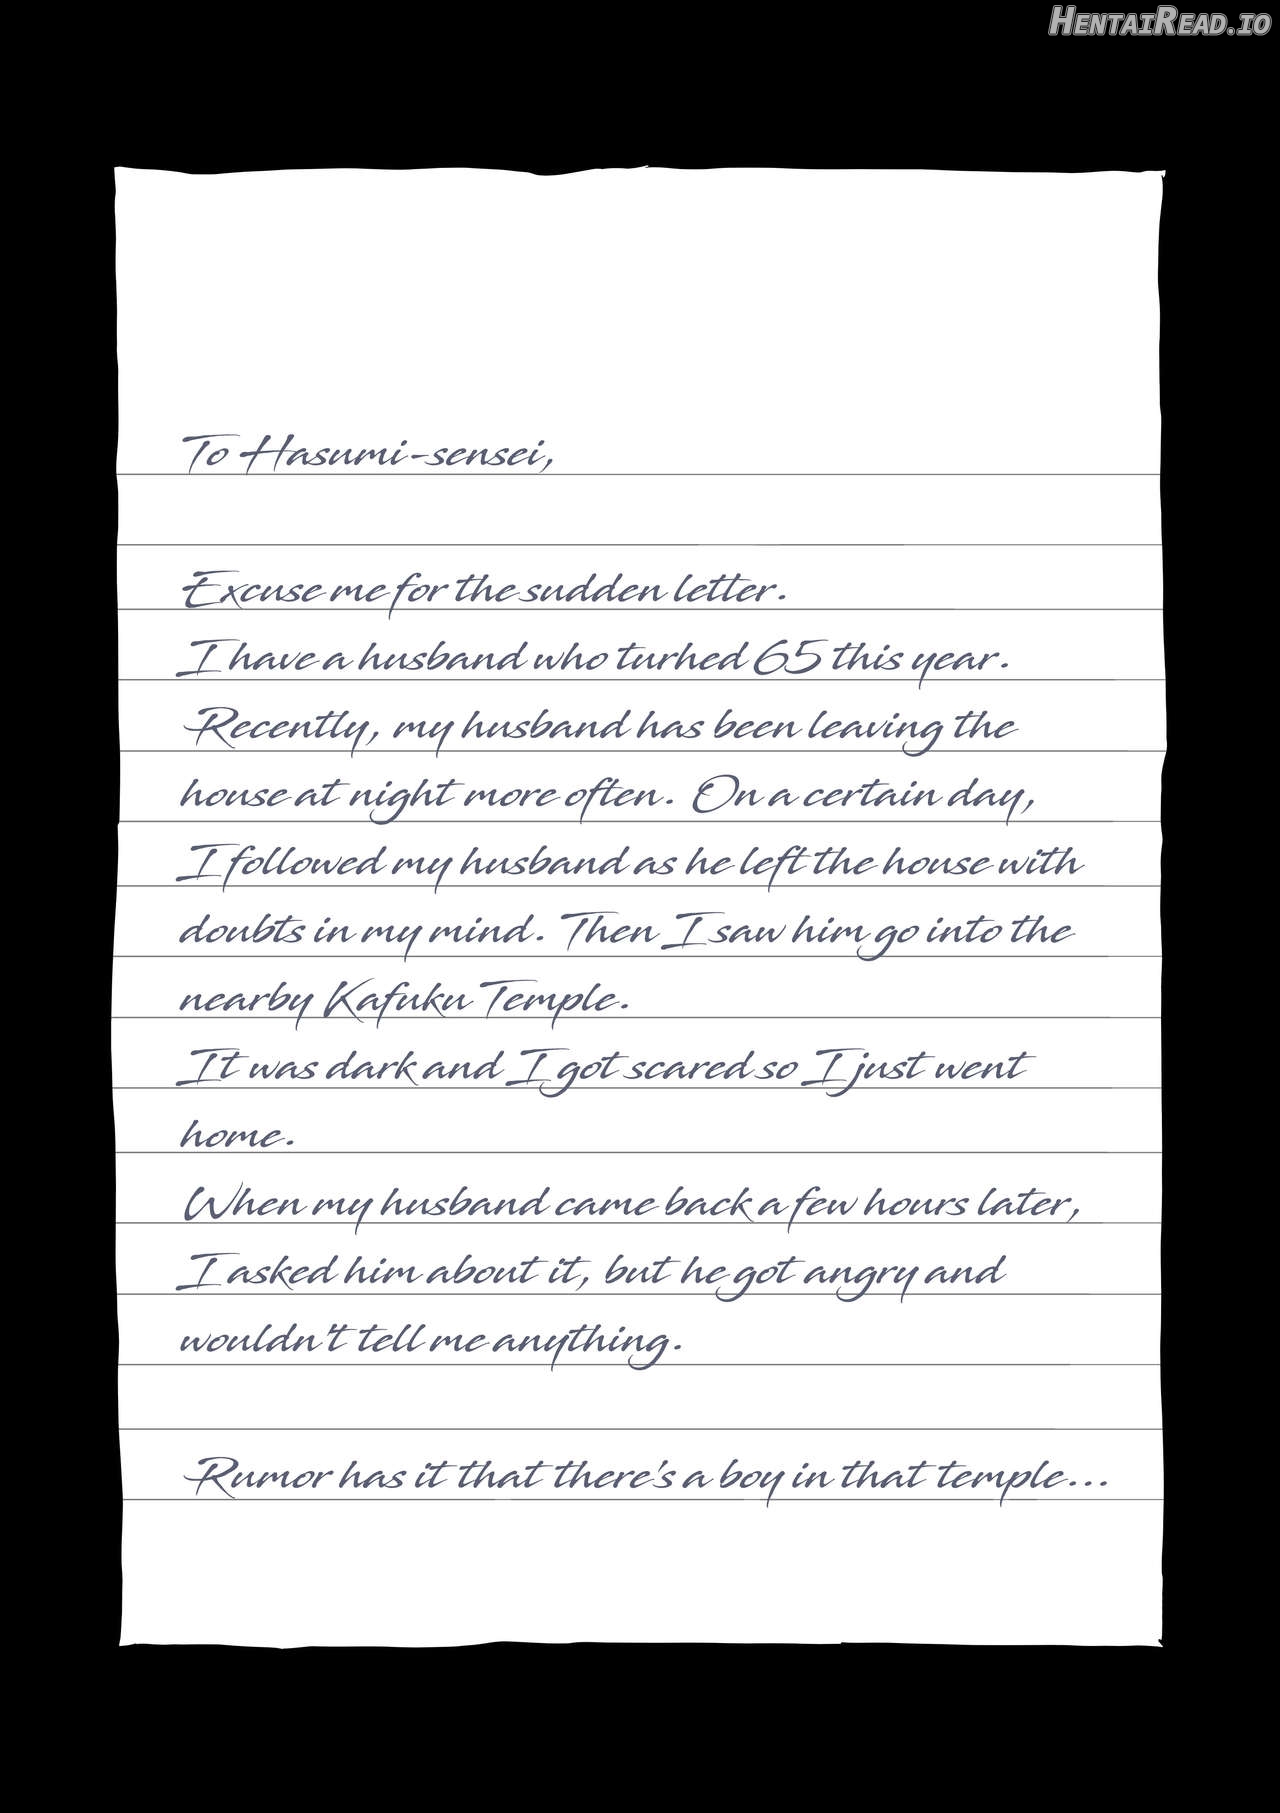 HentaiRead.io
To Hasumi-sensei,
Excuse me for the sudden letter.
I have a husband who turhed 65 this year.
Recently, my husband has been leaving the
house at night more often. On a certain day,
I followed my husband as he left the house with
doubts in my mind. Then I saw him go into the
nearby Kafuku Temple.
It was dark and I got scared so I just went
home.
When my husband came back a few hours later,
I asked him about it, but he got angry and
wouldn't tell me anything.
Rumor has it that there's a boy in that temple...